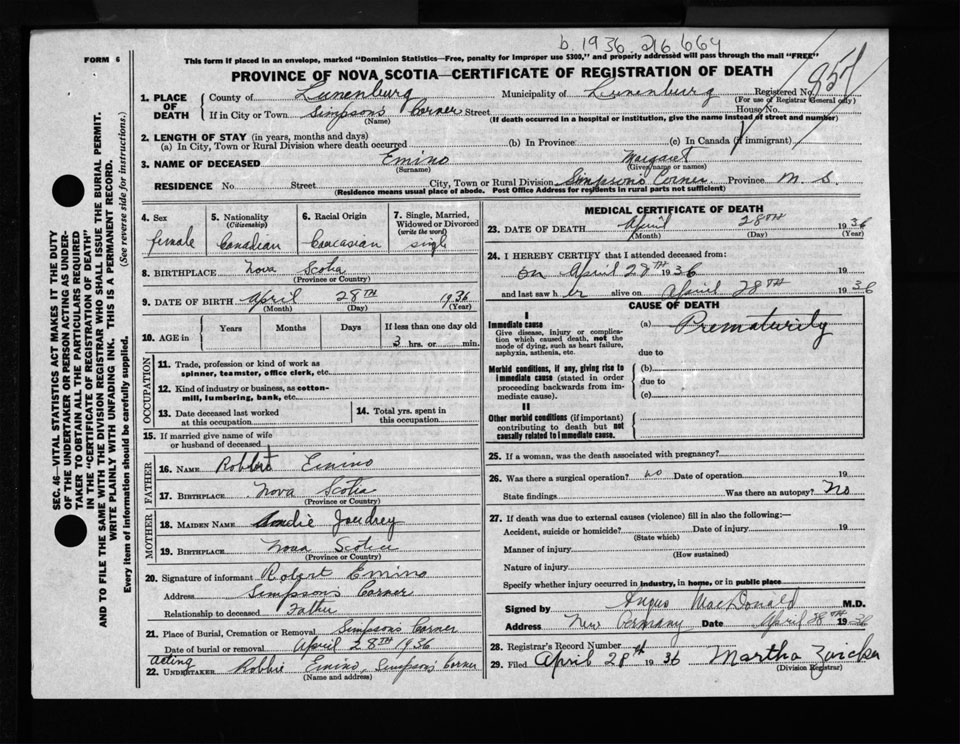 b. 1936. 216 664
FORM 6
This form if placed in an envelope, marked "Dominion Statistics—Free, penalty for improper use $300," and properly addressed will pass through the mail "FREE"
PROVINCE OF NOVA SCOTIA—CERTIFICATE OF REGISTRATION OF DEATH
1. PLACE OF DEATH
County of Lunenburg Municipality of Lunenburg Registered No. 857
(For use of Registrar General only)
If in City or Town Simpsons Corner Street House No.
(Name) (If death occurred in a hospital or institution, give the name instead of street and number)
2. LENGTH OF STAY (in years, months and days)
(a) In City, Town or Rural Division where death occurred (b) In Province (c) In Canada (if immigrant)
3. NAME OF DECEASED Emino Margaret
(Surname) (Given name or names)
RESIDENCE No. Street City, Town or Rural Division Simpson's Corner Province N. S.
(Residence means usual place of abode. Post Office Address for residents in rural parts not sufficient)
4. Sex
female
5. Nationality
(Citizenship)
Canadian
6. Racial Origin
Caucasian
7. Single, Married, Widowed or Divorced
(write the word)
singl
8. BIRTHPLACE Nova Scotia
(Province or Country)
9. DATE OF BIRTH April 28TH 1936
(Month) (Day) (Year)
10. AGE in
Years Months Days If less than one day old
3 hrs. or min.
OCCUPATION
11. Trade, profession or kind of work as
spinner, teamster, office clerk, etc.
12. Kind of industry or business, as cotton-
mill, lumbering, bank, etc.
13. Date deceased last worked
at this occupation
14. Total yrs. spent in
this occupation
15. If married give name of wife
or husband of deceased
FATHER
16. NAME Robbert Emino
17. BIRTHPLACE Nova Scotia
(Province or Country)
MOTHER
18. MAIDEN NAME Joudrey
19. BIRTHPLACE Nova Scotia
(Province or Country)
20. Signature of informant Robert Emino
Address Simpsons Corner
Relationship to deceased Father
21. Place of Burial, Cremation or Removal Simpsons Corner
Date of burial or removal April 28TH 1936
acting
22. UNDERTAKER Robbie Emino, Simpson's Corner
(Name and address)
MEDICAL CERTIFICATE OF DEATH
23. DATE OF DEATH April 28TH 1936
(Month) (Day) (Year)
24. I HEREBY CERTIFY that I attended deceased from:
on April 28TH 1936 19
and last saw her alive on April 28TH 1936
CAUSE OF DEATH
I
Immediate cause
Give disease, injury or complica-
tion which caused death, not the
mode of dying, such as heart failure,
asphyxia, asthenia, etc.
(a) Prematurity
due to
Morbid conditions, if any, giving rise to
immediate cause (stated in order
proceeding backwards from im-
mediate cause).
(b)
due to
(c)
II
Other morbid conditions (if important)
contributing to death but not
causally related to immediate cause.
25. If a woman, was the death associated with pregnancy?
26. Was there a surgical operation? no Date of operation 19
State findings Was there an autopsy? No
27. If death was due to external causes (violence) fill in also the following:—
Accident, suicide or homicide? Date of injury 19
(State which)
Manner of injury
(How sustained)
Nature of injury
Specify whether injury occurred in industry, in home, or in public place
Signed by Angus MacDonald M.D.
Address New Germany Date April 28th 1936
28. Registrar's Record Number
29. Filed April 28th 1936 Martha
(Division Registrar)
SEC. 46—VITAL STATISTICS ACT MAKES IT THE DUTY
OF THE UNDERTAKER OR PERSON ACTING AS UNDER-
TAKER TO OBTAIN ALL THE PARTICULARS REQUIRED
IN THE "CERTIFICATE OF REGISTRATION OF DEATH"
AND TO FILE THE SAME WITH THE DIVISION REGISTRAR WHO SHALL ISSUE THE BURIAL PERMIT.
WRITE PLAINLY WITH UNFADING INK. THIS IS A PERMANENT RECORD.
Every item of information should be carefully supplied. (See reverse side for instructions.)